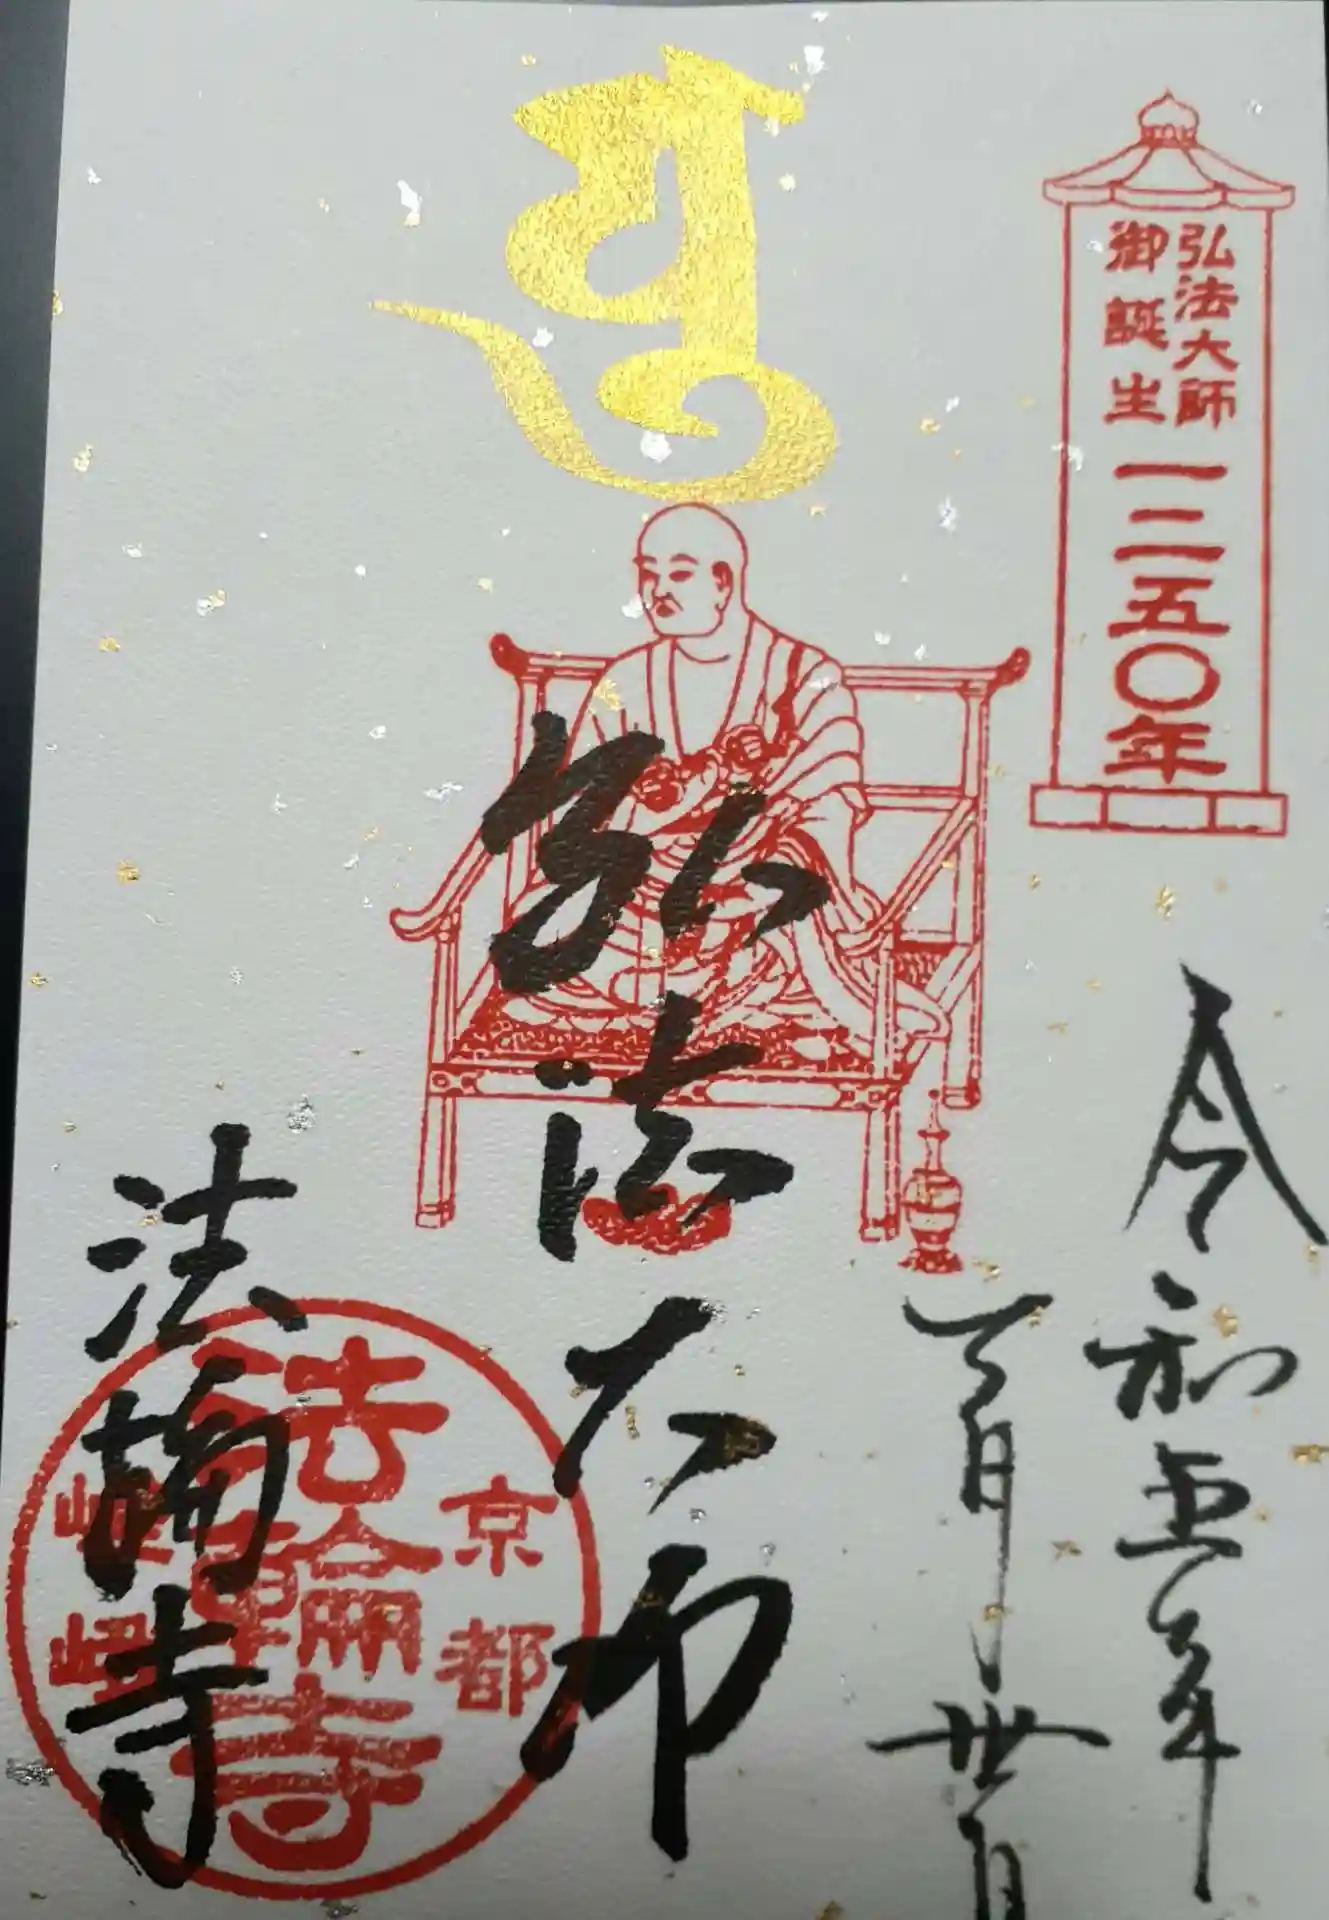 弘法大師
御誕生
一二五〇年
令和五年
月
日
弘法大師
京都
法輪寺
嵯峨
法輪寺